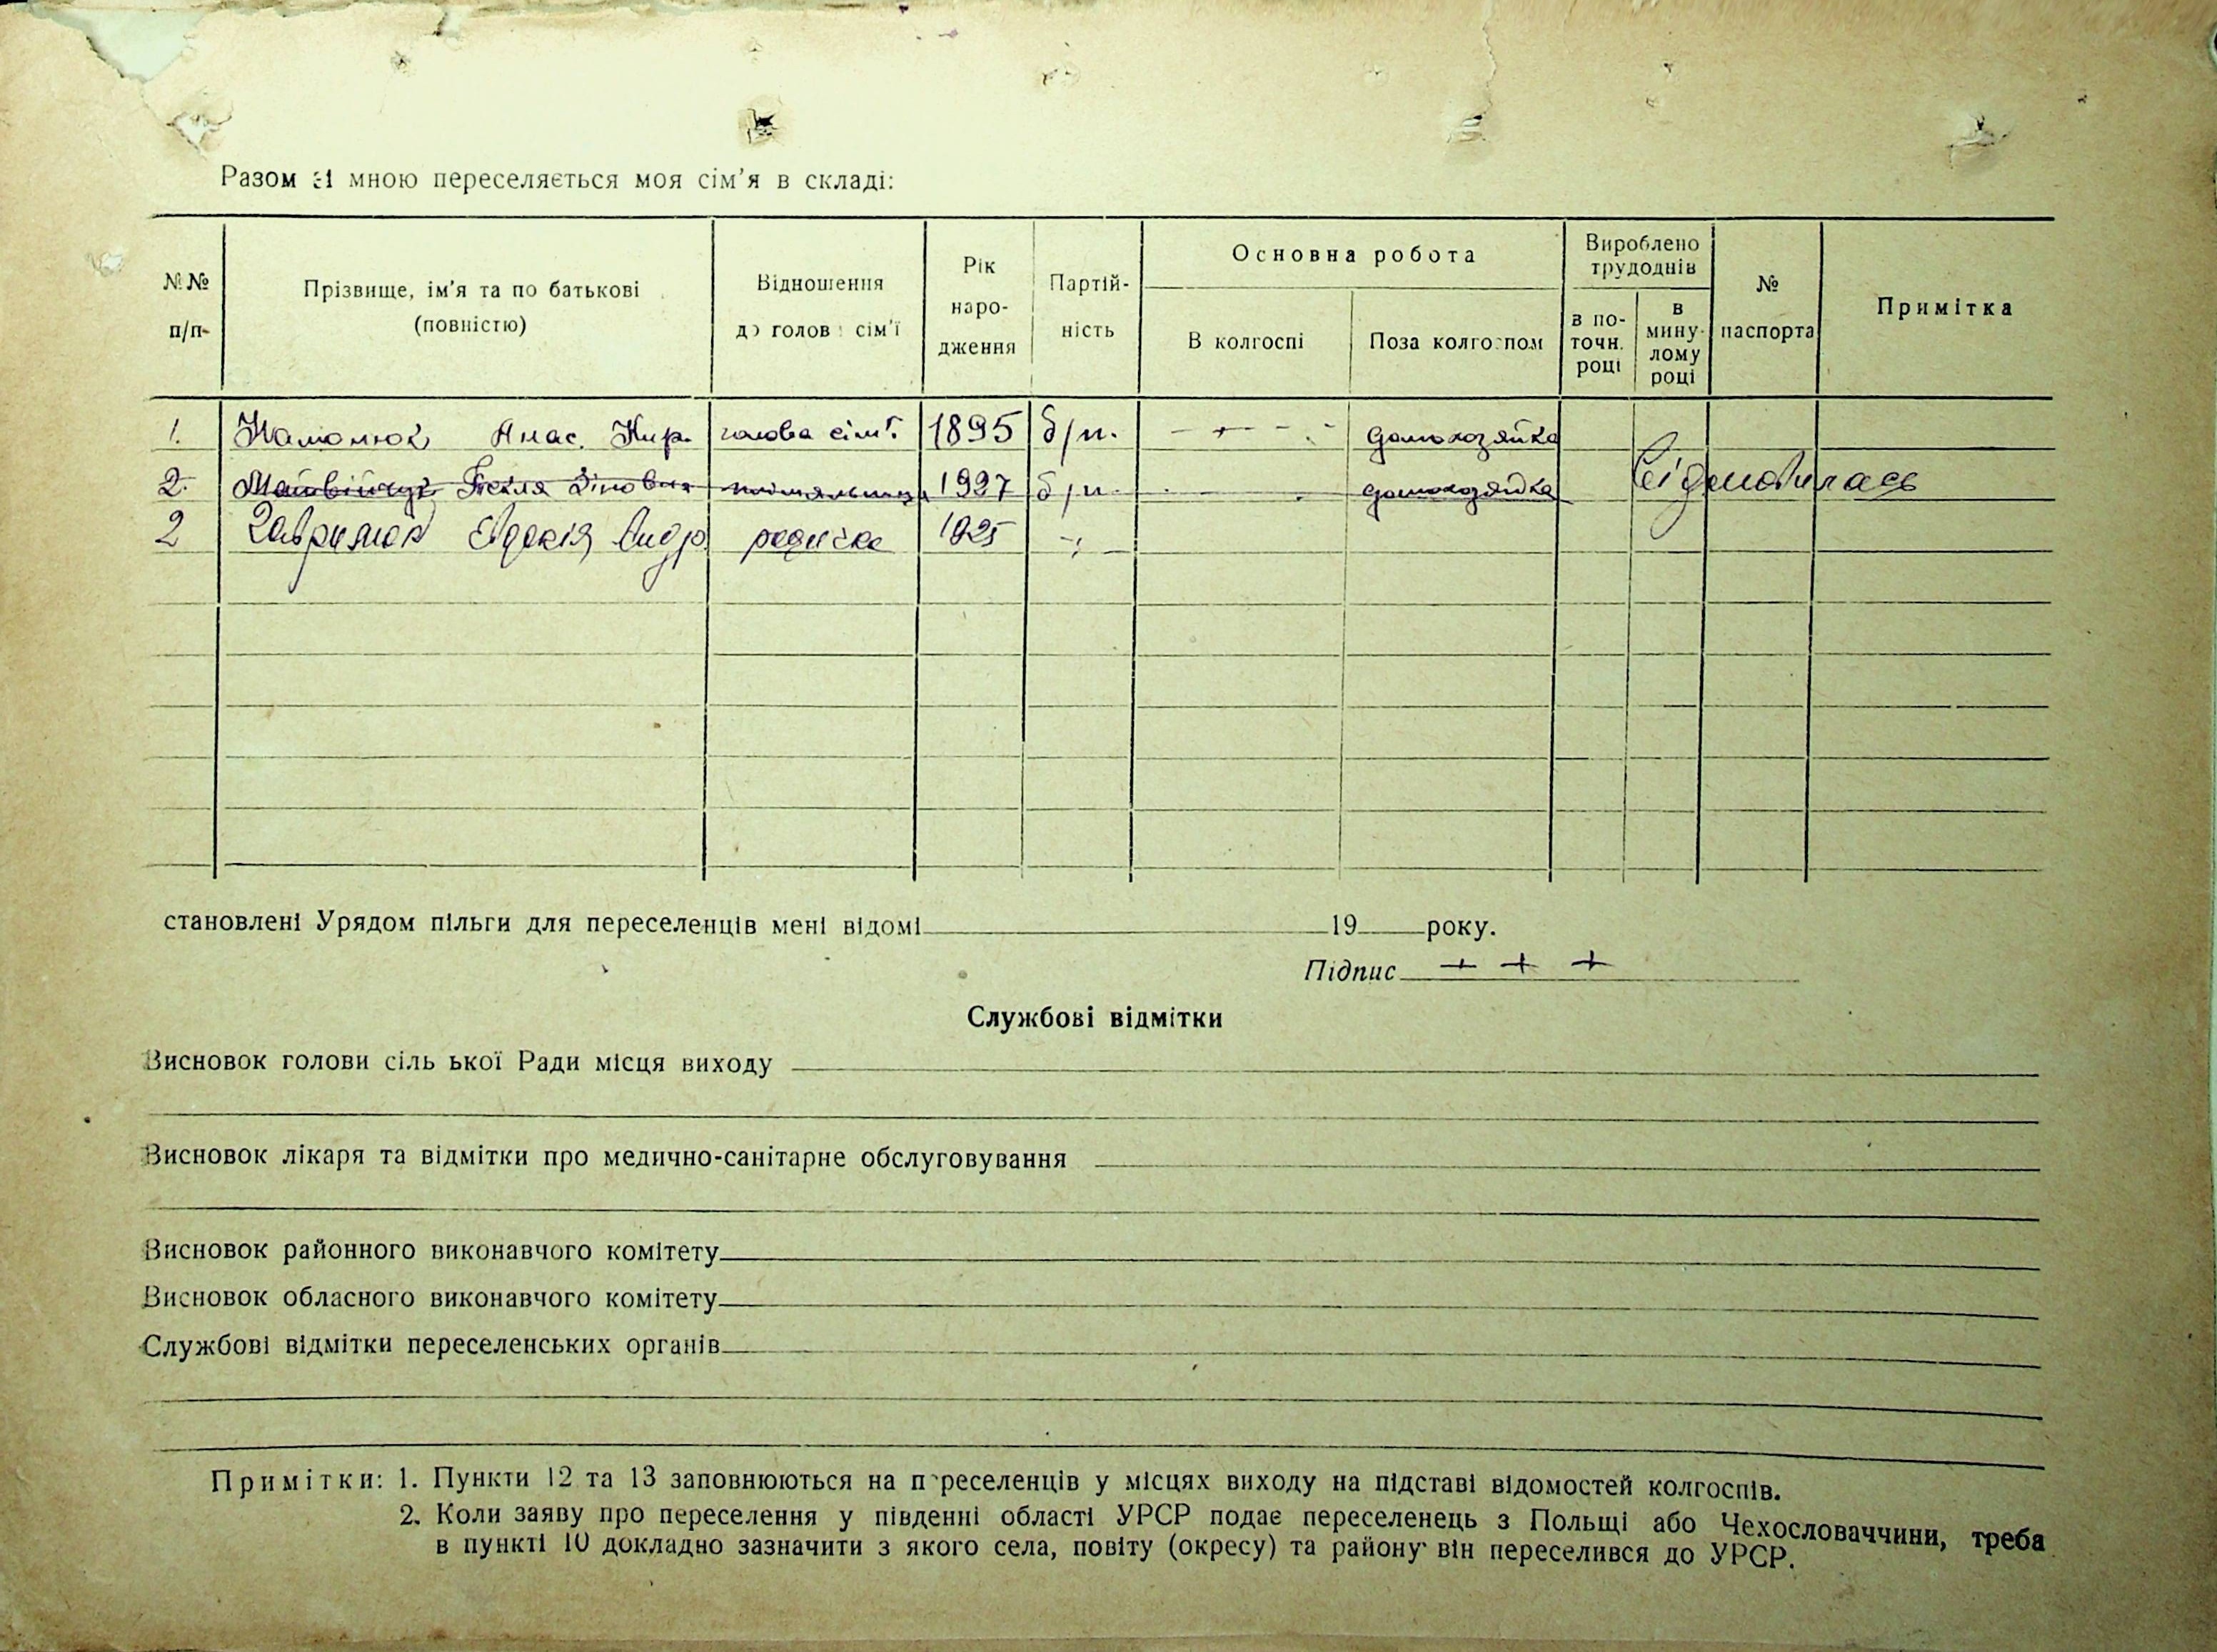 Разом зі мною переселяється моя сім'я в складі:
№№ п/п-
Прізвище, ім'я та по батькові (повністю)
Відношення до голови сім'ї
Рік наро-дження
Партій-ність
Основна робота
В колгоспі
Поза колгоспом
Вироблено трудоднів
в по-точн. році
в мину-лому році
№ паспорта
Примітка
1. Анас. Кир. голова сім'ї 1895 б/п. домохозяйка
2. Матвійчук Текля Зіновна 1927 б/п. домохозяйка Відмовилась
2 Гаврилюк Євдокія Андр. родичка 1925 -"-
становлені Урядом пільги для переселенців мені відомі 19 року.
Підпис + + +
Службові відмітки
Висновок голови сіль ької Ради місця виходу
Висновок лікаря та відмітки про медично-санітарне обслуговування
Висновок районного виконавчого комітету
Висновок обласного виконавчого комітету
Службові відмітки переселенських органів
Примітки: 1. Пункти 12 та 13 заповнюються на переселенців у місцях виходу на підставі відомостей колгоспів.
2. Коли заяву про переселення у південні області УРСР подає переселенець з Польщі або Чехословаччини, треба
в пункті 10 докладно зазначити з якого села, повіту (окресу) та району він переселився до УРСР.